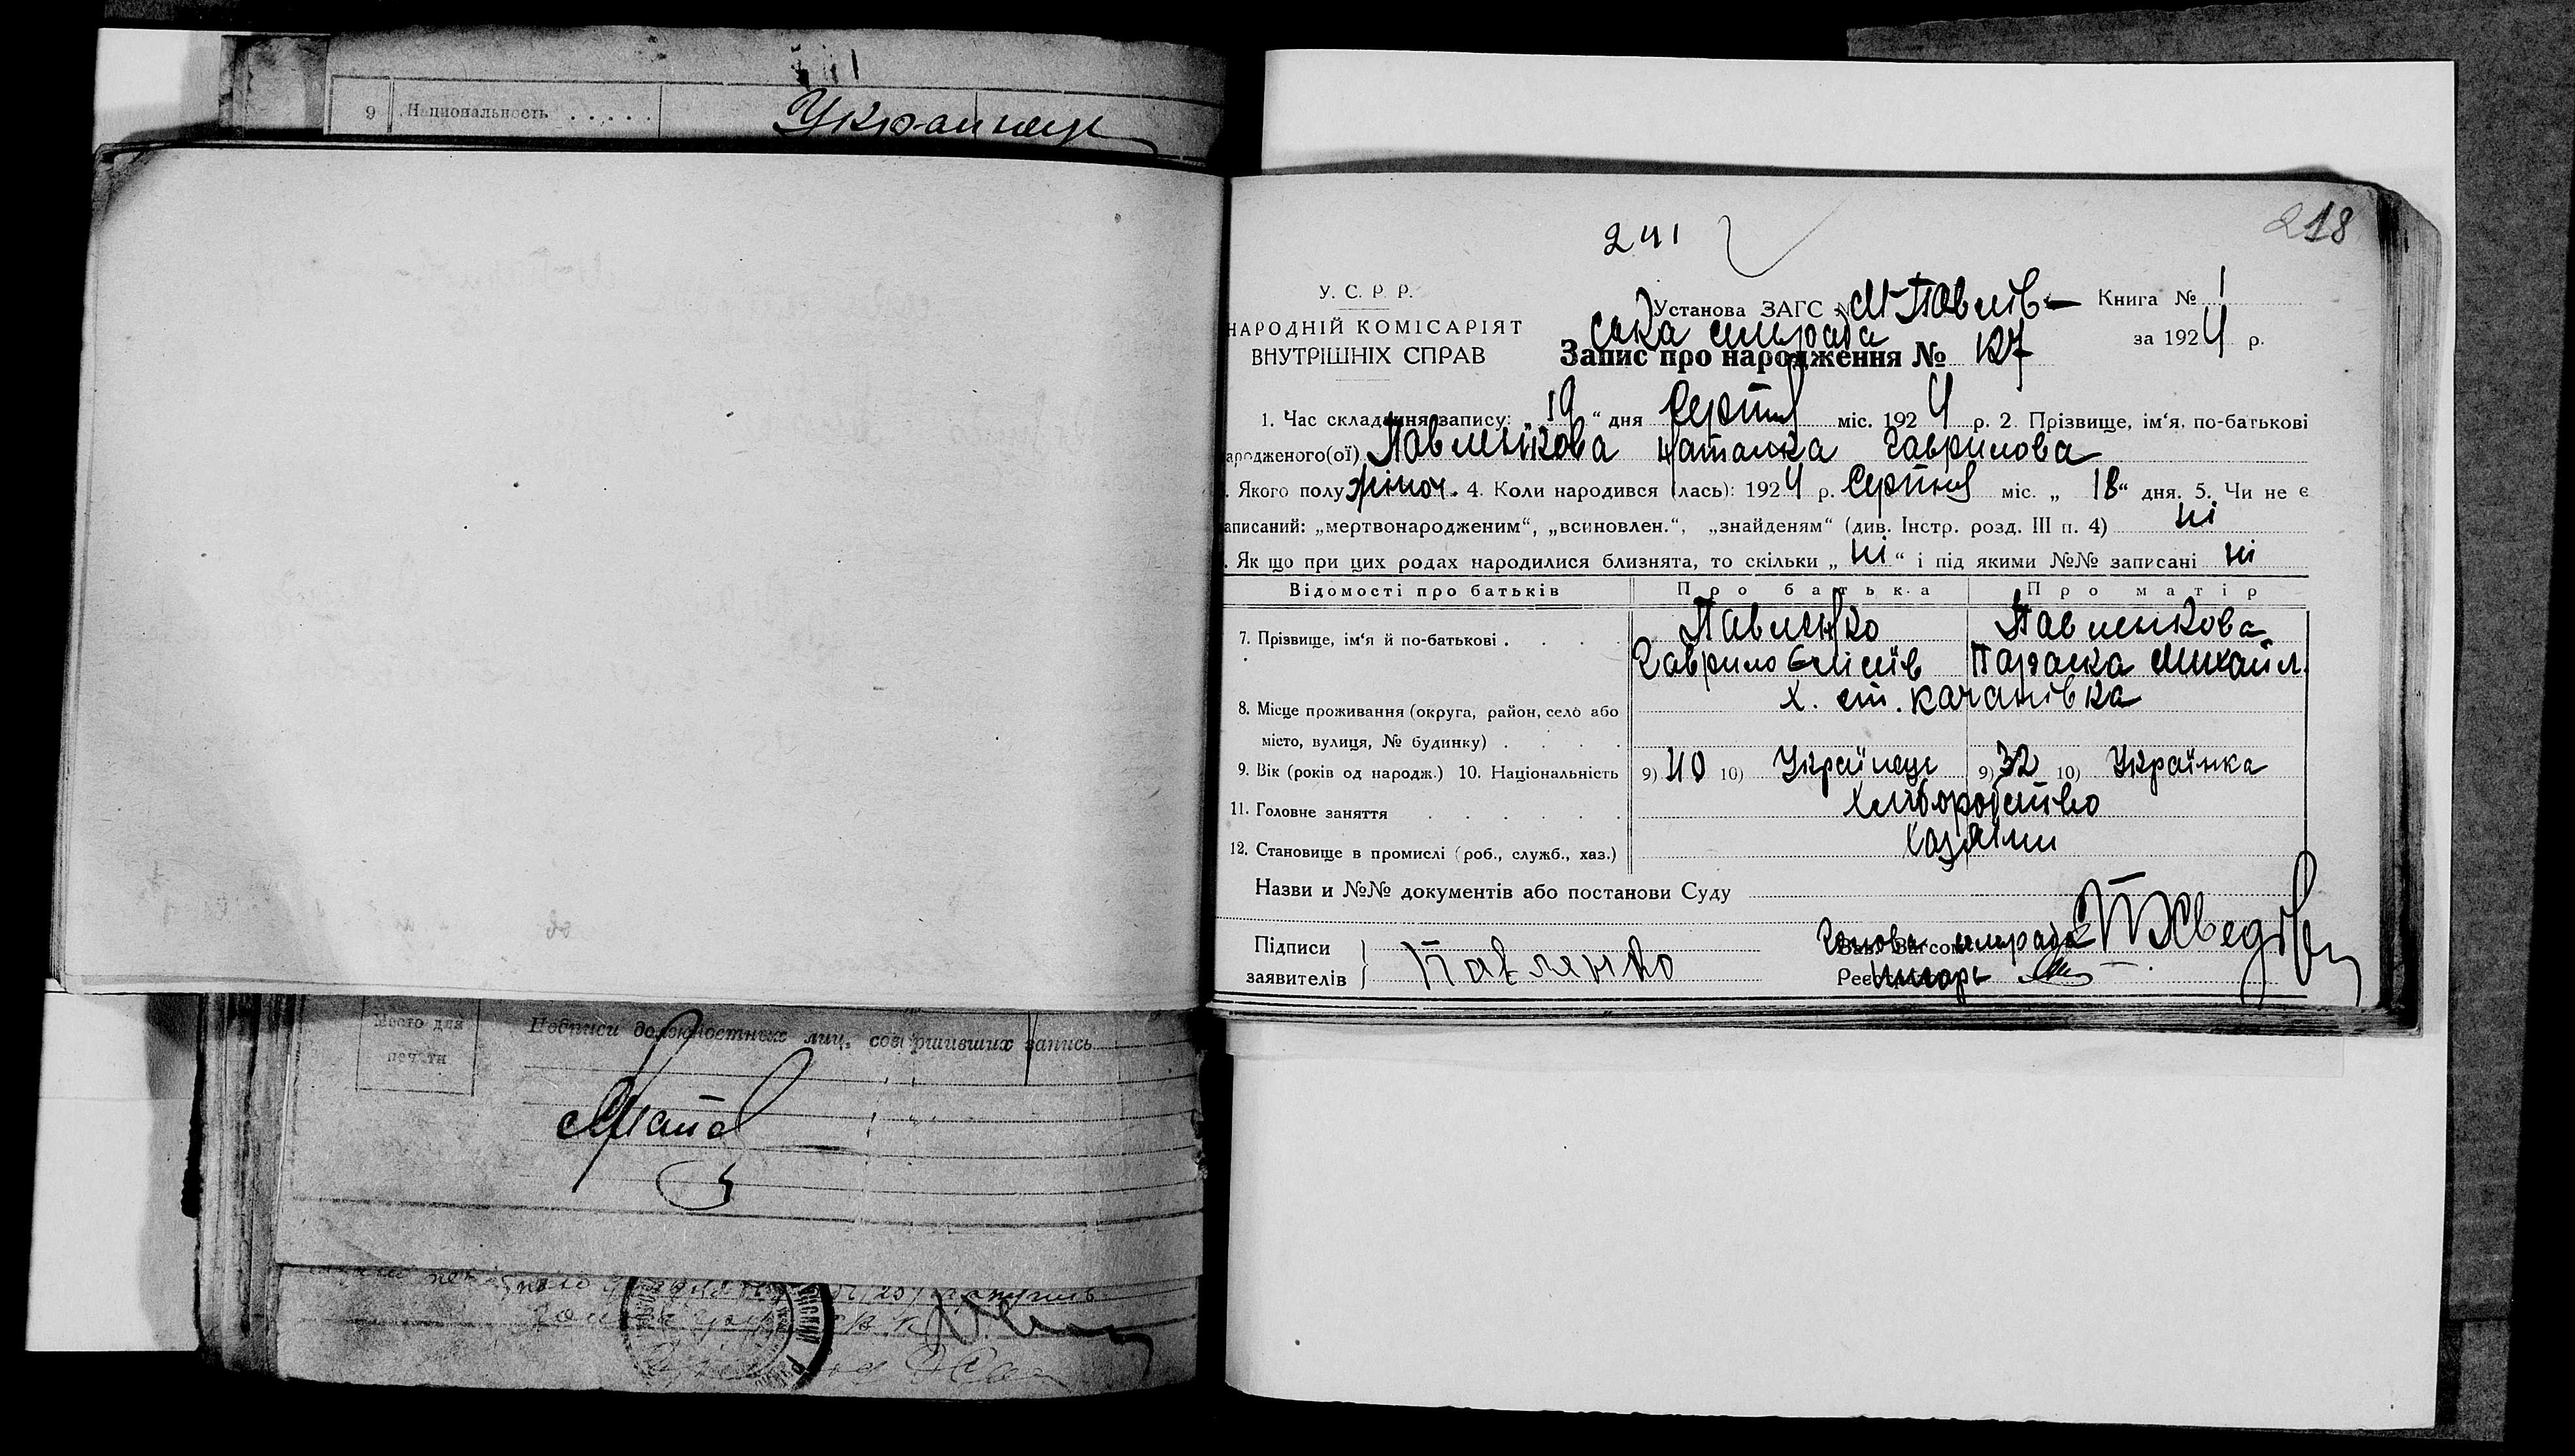 9 Национальность . . . . . Украинец
218
241
У. С. Р. Р.
НАРОДНІЙ КОМІСАРІЯТ
ВНУТРІШНІХ СПРАВ
Установа ЗАГС М-Павлів-
ська сільрада
Книга № 1
за 1924 р.
Запис про народження № 127
1. Час складання запису: „19“ дня Серпня міс. 1924 р. 2. Прізвище, ім‘я, по-батькові
ародженого(ої) Павленкова Наталка Гаврилова
. Якого полу жіноч. 4. Коли народився (лась): 1924 р. Серпня міс. „18“ дня. 5. Чи не є
аписаний: „мертвонародженим“, „всиновлен.“, „знайденям“ (див. Інстр. розд. III п. 4) ні
. Як що при цих родах народилися близнята, то скільки „ні“ і під якими №№ записані ні
Відомості про батьків Про батька Про матір
7. Прізвище, ім‘я й по-батькові . . . . Павленко Павленкова
Гаврило Єлісеїв Параска Михайл.
8. Місце проживання (округа, район, село або х. ст. Качанівка
місто, вулиця, № будинку) . . . .
9. Вік (років од народж.) 10. Національність 9) 40 10) Українець 9) 32 10) Українка
11. Головне заняття . . . . . . Хліборобство
12. Становище в промислі (роб., служб., хаз.) Хазяїни
Назви и №№ документів або постанови Суду
Підписи
заявителів
Павленко
Голова сільради
Писарь
Место для
печати
Подписи должностных лиц, совершивших запись